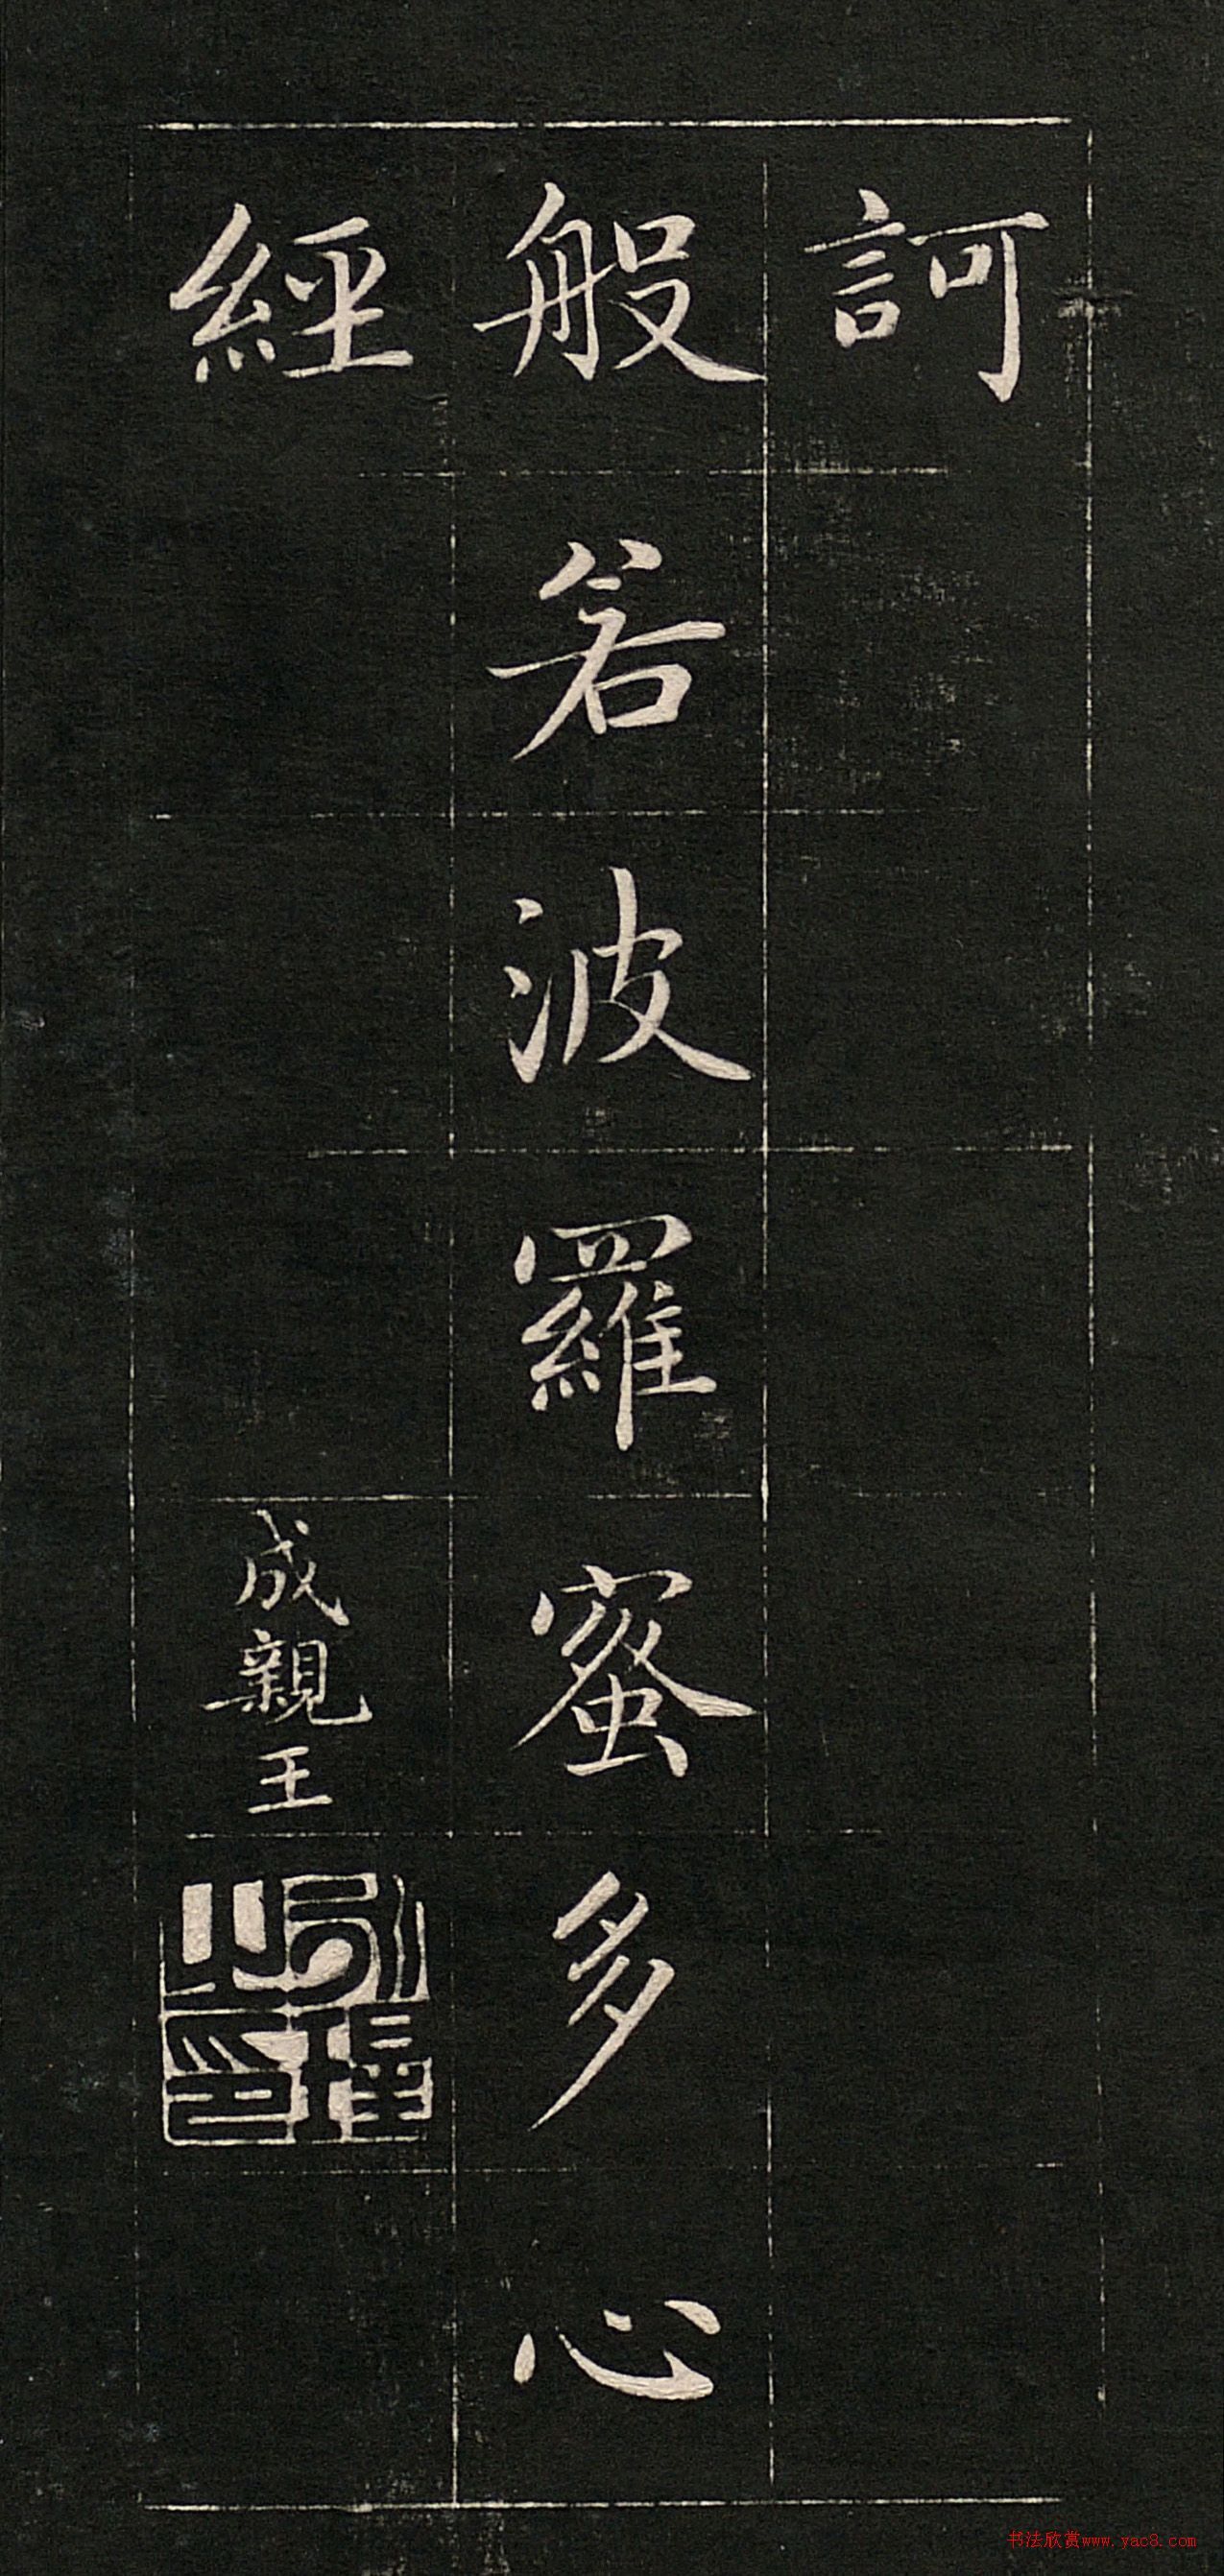 訶
般若波羅蜜多心
經
成親王
永瑆之印
书法欣赏www.yac8.com